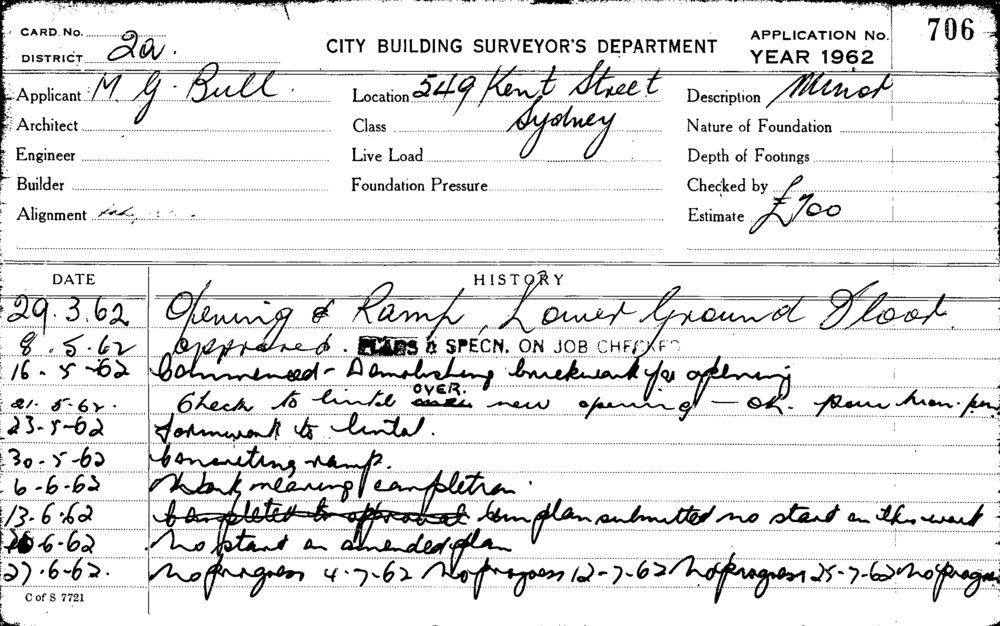 CARD. No.
DISTRICT 2a.
CITY BUILDING SURVEYOR'S DEPARTMENT
APPLICATION No. 706
YEAR 1962
Applicant M G. Bull. Location 549 Kent Street Description Minor
Architect Class Sydney Nature of Foundation
Engineer Live Load Depth of Footings
Builder Foundation Pressure Checked by
Alignment Estimate £700
DATE HISTORY
29.3.62 Opening & Ramp, Lower Ground Floor.
8.5.62 approved. PLANS & SPECN. ON JOB CHECKED
16-5-62 Commenced - Demolishing brickwork for opening
21.5.62. Check to lintel OVER. new opening - ok. pour
23-5-62 formwork to lintol.
30-5-62 Concreting ramp.
6-6-62 Work nearing completion.
13.6.62 Completed to approval plan submitted no start on this work
6-62 No start on amended plan
27.6-62. No progress 4-7-62 No progress 12-7-62 No progress 25-7-62 No progress
C of S 7721